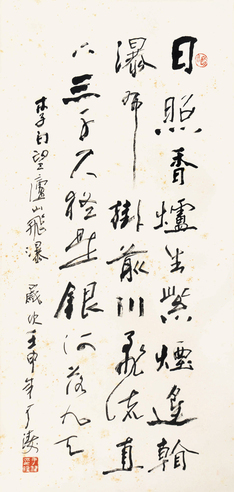 日照香爐生紫煙遙看
瀑布掛前川飛流直
下三千尺疑是銀河落九天
李白望廬山飛瀑 歲次壬申年